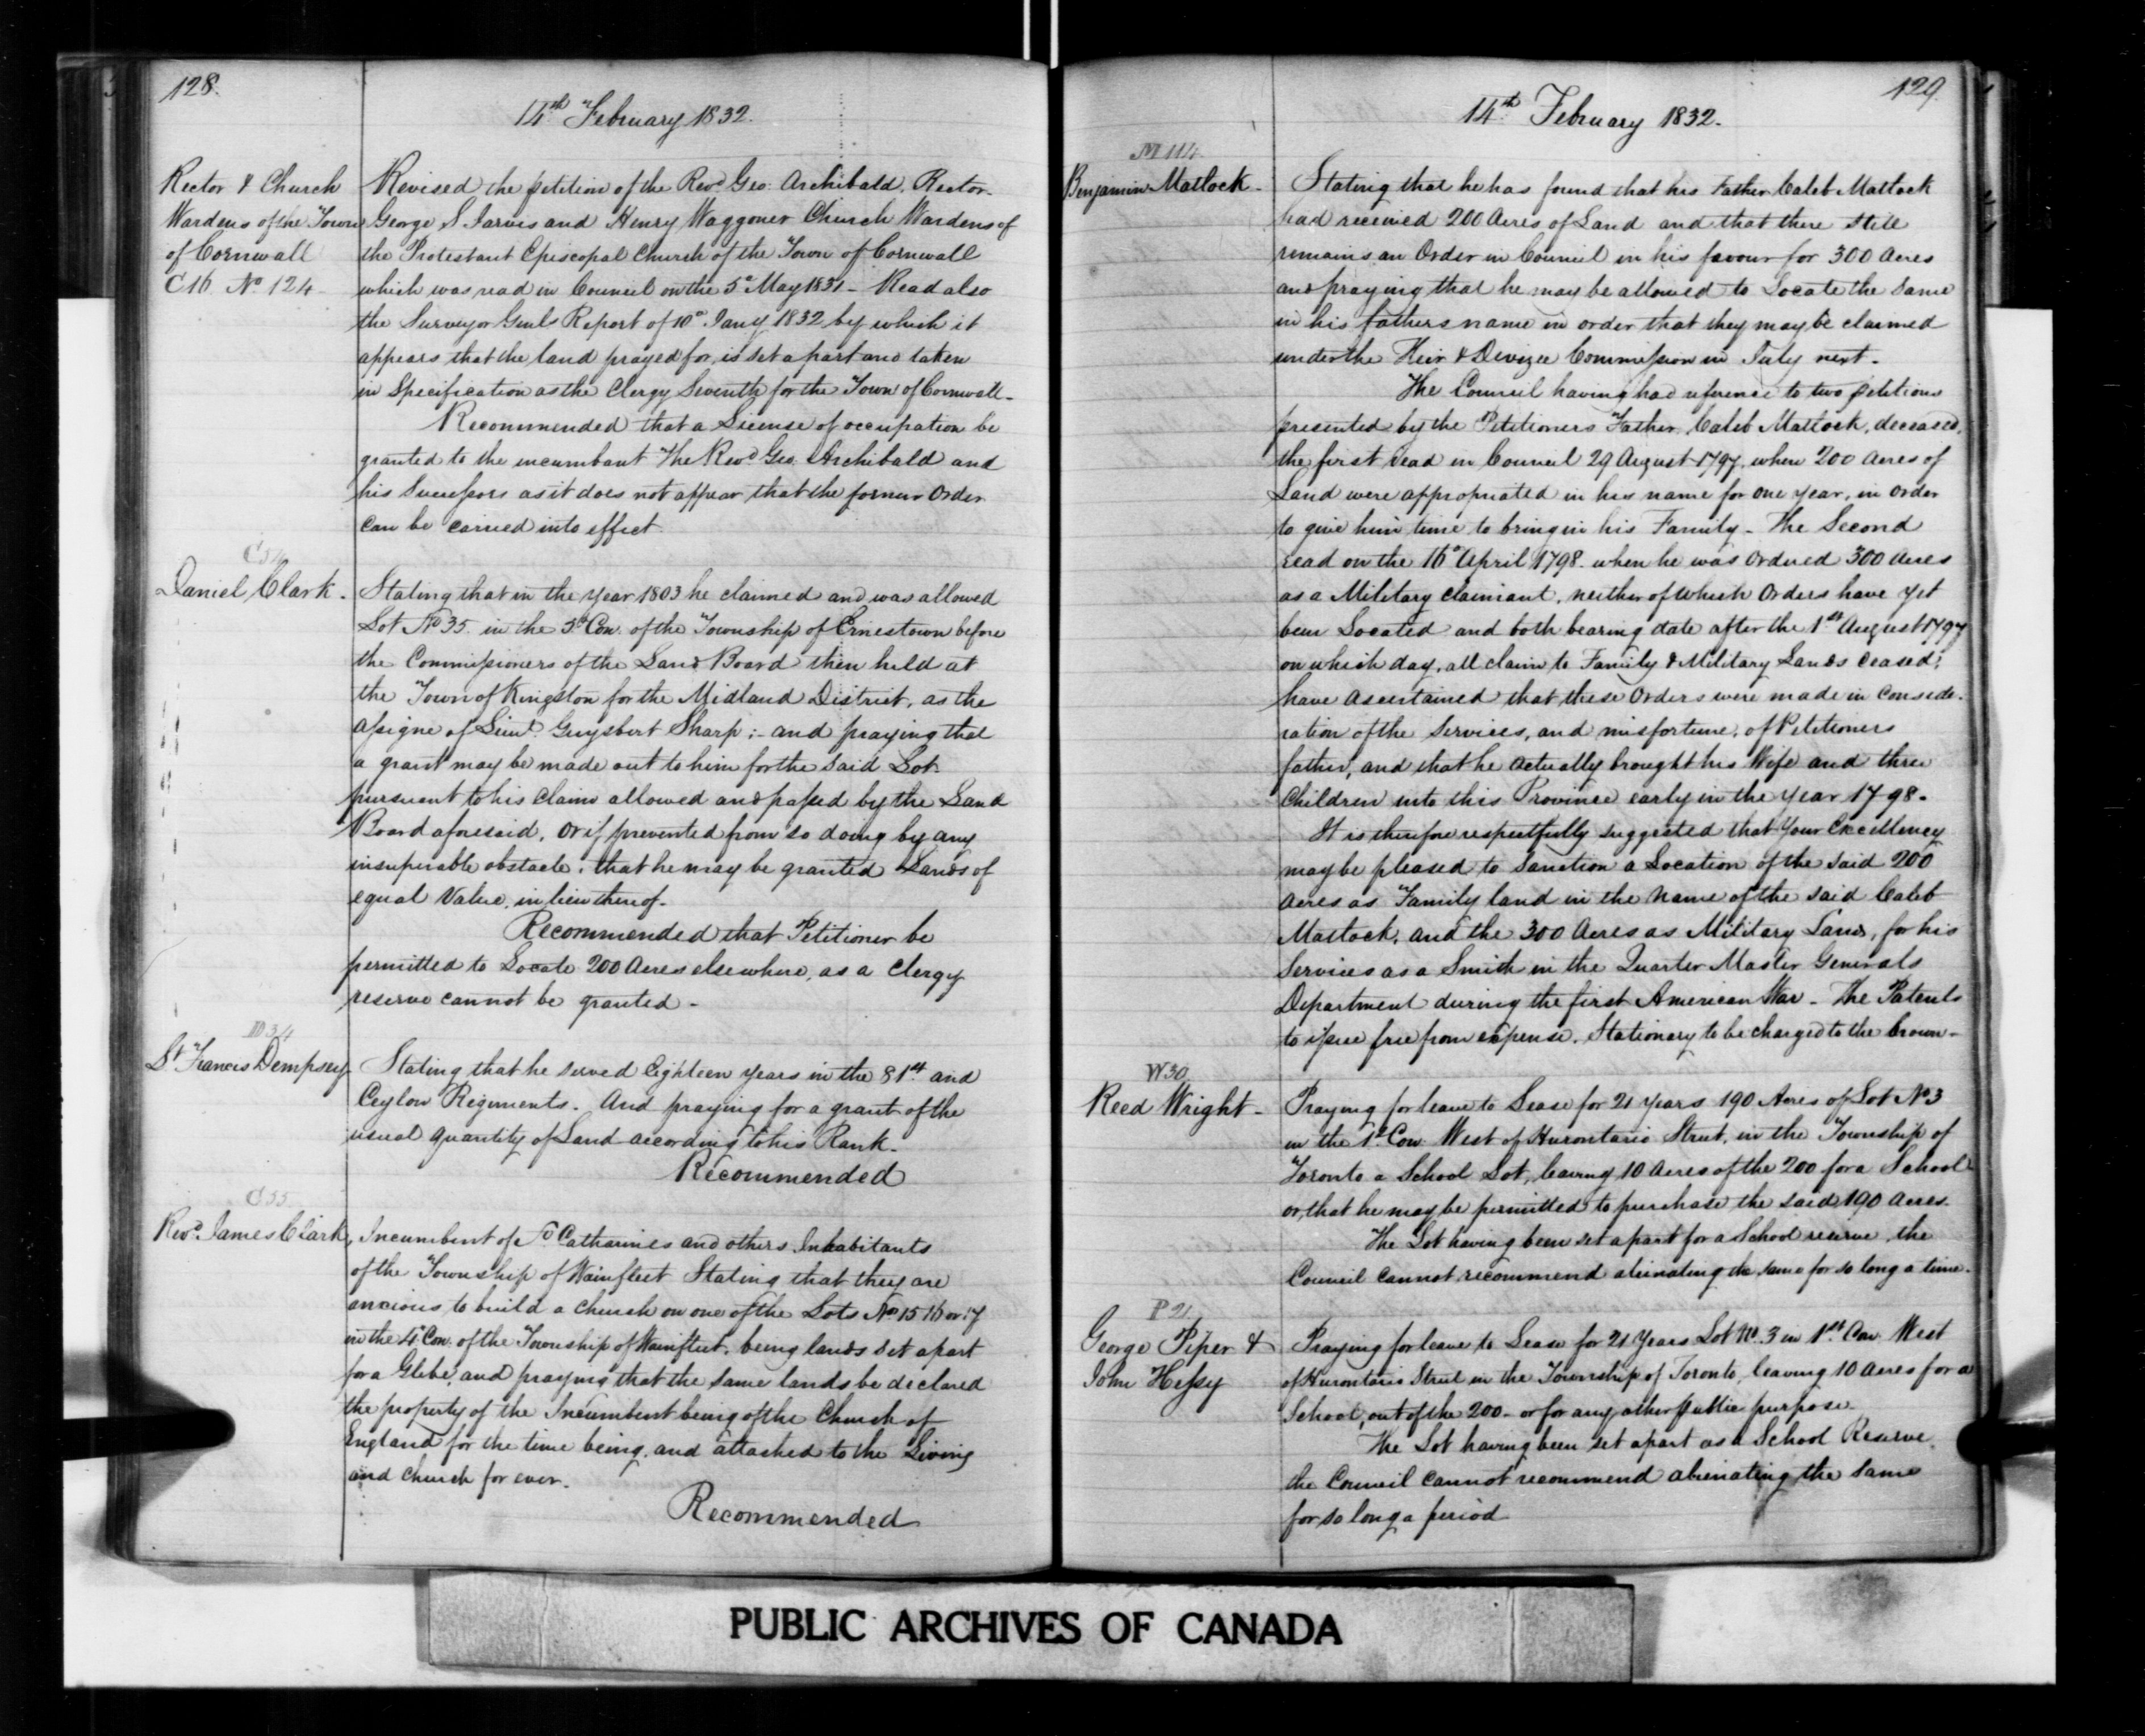 128.
14th February 1832.
Rector & Church
Wardens of the Town
of Cornwall
C 16 No 124
Revised the petition of the Revd Geo: Archibald, Rector
George S Jarvis and Henry Waggoner Church Wardens of
the Protestant Episcopal Church of the Town of Cornwall
which was read in Council on the 5th May 1831 - Read also
the Surveyor Genls Report of 10th Jany 1832 by which it
appears that the land prayed for, is set apart and taken
in Specification as the Clergy Seventh for the Town of Cornwall -
Recommended that a License of occupation be
granted to the incumbant The Revd Geo. Archibald and
his Successors as it does not appear that the former Order
can be carried into effect
Daniel Clark.
Stating that in the year 1803 he claimed and was allowed
Lot No 35 in the 5th Con. of the Township of Ernestown before
the Commissioners of the Land Board then held at
the Town of Kingston for the Midland District, as the
assigne of Lieut. Guysbert Sharp; - and praying that
a grant may be made out to him for the said Lot
pursuant to his Claim allowed and passed by the Land
Board aforesaid, or if prevented from so doing by any
insuperable obstacle, that he may be granted Lands of
equal Value, in lieu thereof.
Recommended that Petitioner be
permitted to Locate 200 Acres elsewhere, as a Clergy
reserve cannot be granted -
D 34
Lt Francis Dempsey
Stating that he served Eighteen years in the 81st and
Ceylon Regiments. And praying for a grant of the
usual quantity of Land according to his Rank.
Recommended
C 55
Revd. James Clark,
Incumbent of St Catharines and others Inhabitants
of the Township of Wainfleet Stating that they are
anxious to build a Church on one of the Lots No 15 16 or 17
in the 4th Con. of the Township of Wainfleet, being lands set apart
for a Glebe, and praying that the same lands be declared
the property of the Incumbent being of the Church of
England for the time being, and attached to the Living
and Church for ever.
Recommended
129.
14th February 1832.
M 114
Benjamin Matlock -
Stating that he has found that his Father Caleb Matlock
had received 200 Acres of Land and that there still
remains an Order in Council in his favour for 300 Acres
and praying that he may be allowed to Locate the same
in his fathers name in order that they may be claimed
under the Heir & Devizee Commission in July next.
The Council having had reference to two petitions
presented by the Petitioners Father Caleb Matlock, deceased,
the first read in Council 29 August 1797, when 200 Acres of
Land were appropriated in his name for one year, in order
to give him time to bring in his Family - The Second
read on the 16th April 1798. when he was Ordered 300 Acres
as a Military claimant, neither of which Orders have yet
been Located and both bearing date after the 1st August 1797
on which day, all claim to Family & Military Lands ceased;
have ascertained that these Orders were made in conside-
ration of the Services, and misfortune, of Petitioners
father, and that he actually brought his Wife and three
Children into this Province early in the year 1798.
It is therefore respectfully suggested that Your Excellency
may be pleased to sanction a Location of the said 200
Acres as Family land in the name of the said Caleb
Matlock, and the 300 Acres as Military Lands, for his
Services as a Smith in the Quarter Master Generals
Department during the first American War - The Patents
to issue free from expense. Stationary to be charged to the Crown -
W 30
Reed Wright -
Praying for leave to Lease for 21 years 190 Acres of Lot No 3
in the 1st Con West of Hurontario Street, in the Township of
Toronto a School Lot, leaving 10 Acres of the 200 for a School
or, that he may be permitted to purchase the said 190 Acres.
The Lot having been set apart for a School reserve, the
Council cannot recommend alienating the same for so long a time.
P 21
George Piper &
John Hessy
Praying for leave to Lease for 21 Years Lot No. 3 in 1st Con West
of Hurontario Street in the Township of Toronto, leaving 10 Acres for a
School, out of the 200 - or for any other public purpose.
The Lot having been set apart as a School Reserve
the Council cannot recommend alienating the same
for so long a period
PUBLIC ARCHIVES OF CANADA